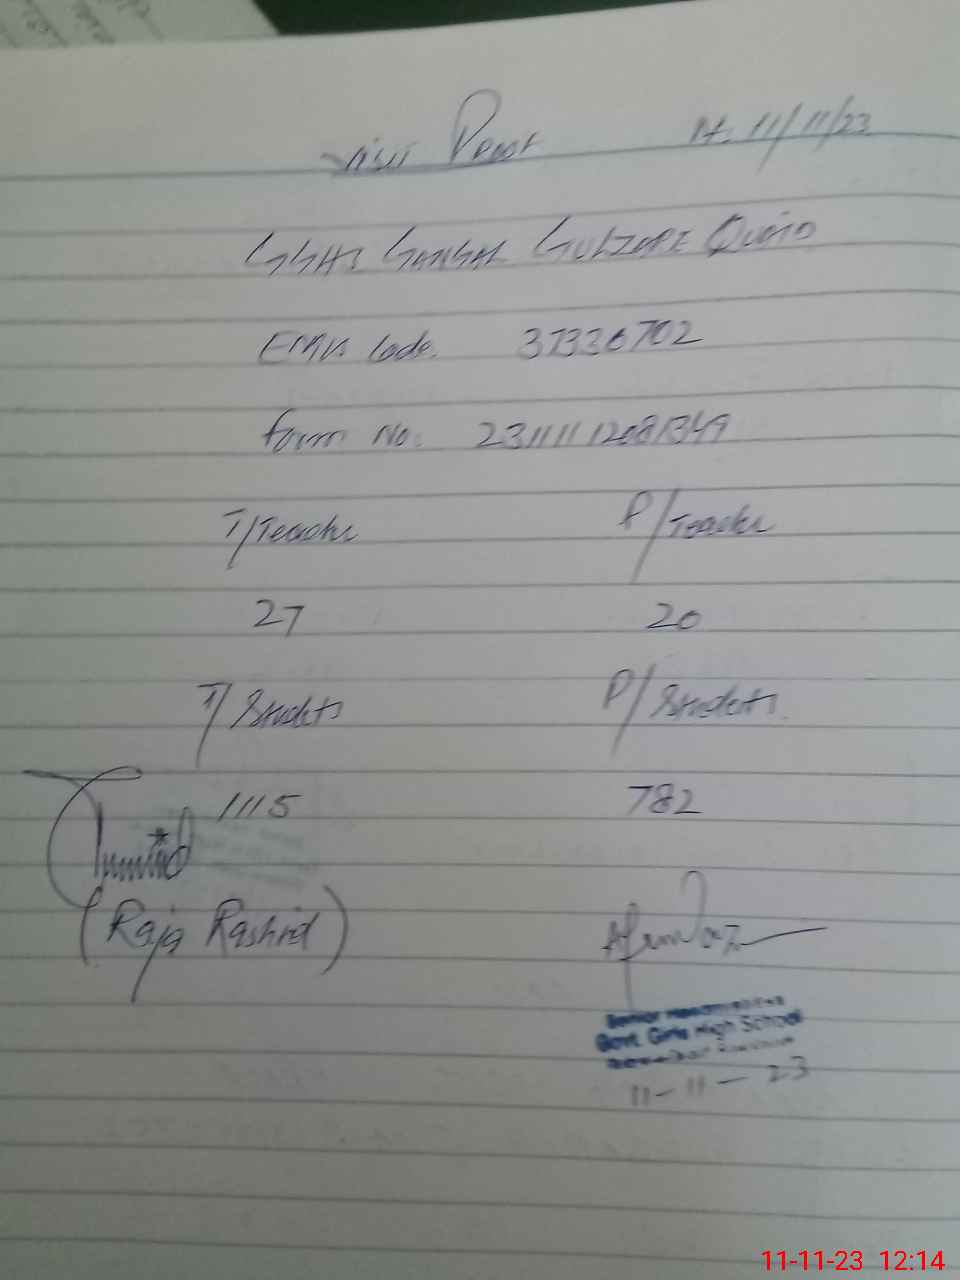 Visit Proof Dt. 11/11/23
GGHS Gangal Gulzare Quaid
EMIS Code. 37336702
Form No: 23111112081349
T/Teacher P/Teacher
27 20
T/Students P/Students
1115 782
(Raja Rashid)
Senior Headmistress
Govt. Girls High School
11-11-23
11-11-23 12:14